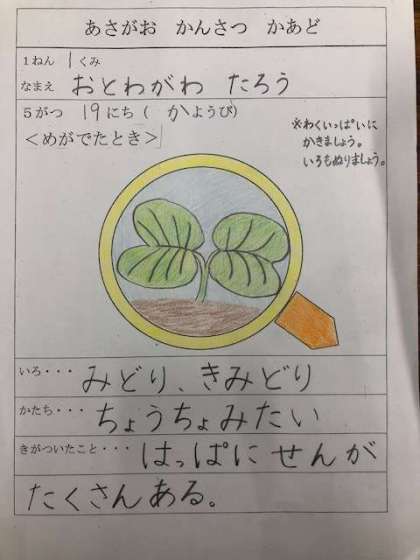 あさがお かんさつ かあど
1ねん 1くみ
なまえ おとわがわ たろう
5がつ 19にち( かようび)
<めがでたとき>
※わくいっぱいに
かきましょう。
いろもぬりましょう。
いろ・・・みどり、きみどり
かたち・・・ちょうちょみたい
きがついたこと・・・はっぱにせんが
たくさんある。